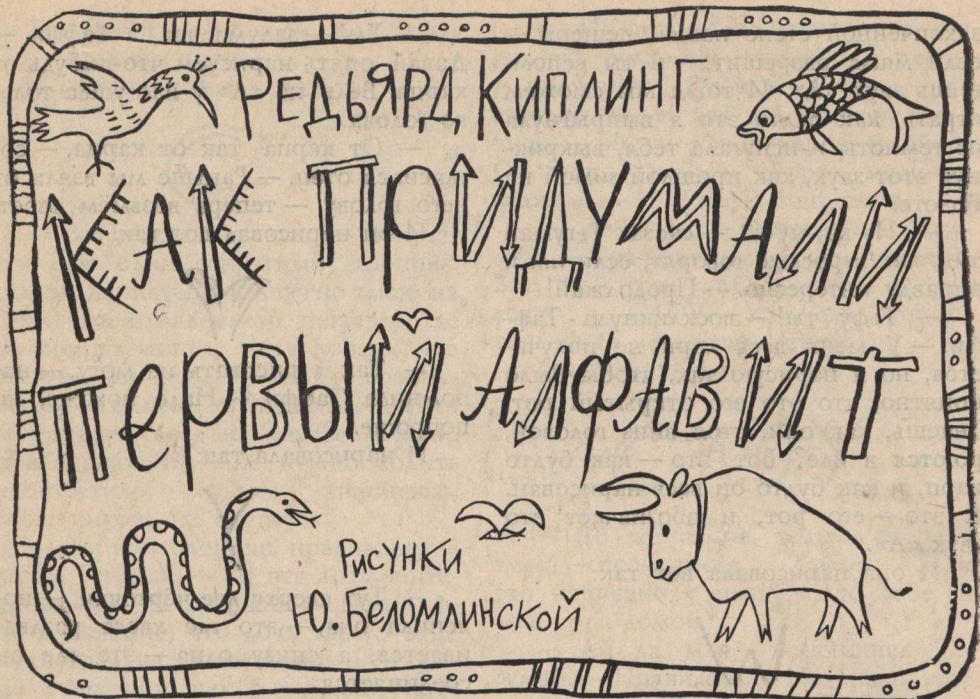 РЕДЬЯРД КИПЛИНГ
КАК ПРИДУМАЛИ
ПЕРВЫЙ АЛФАВИТ
Рисунки
О. Беломлинской